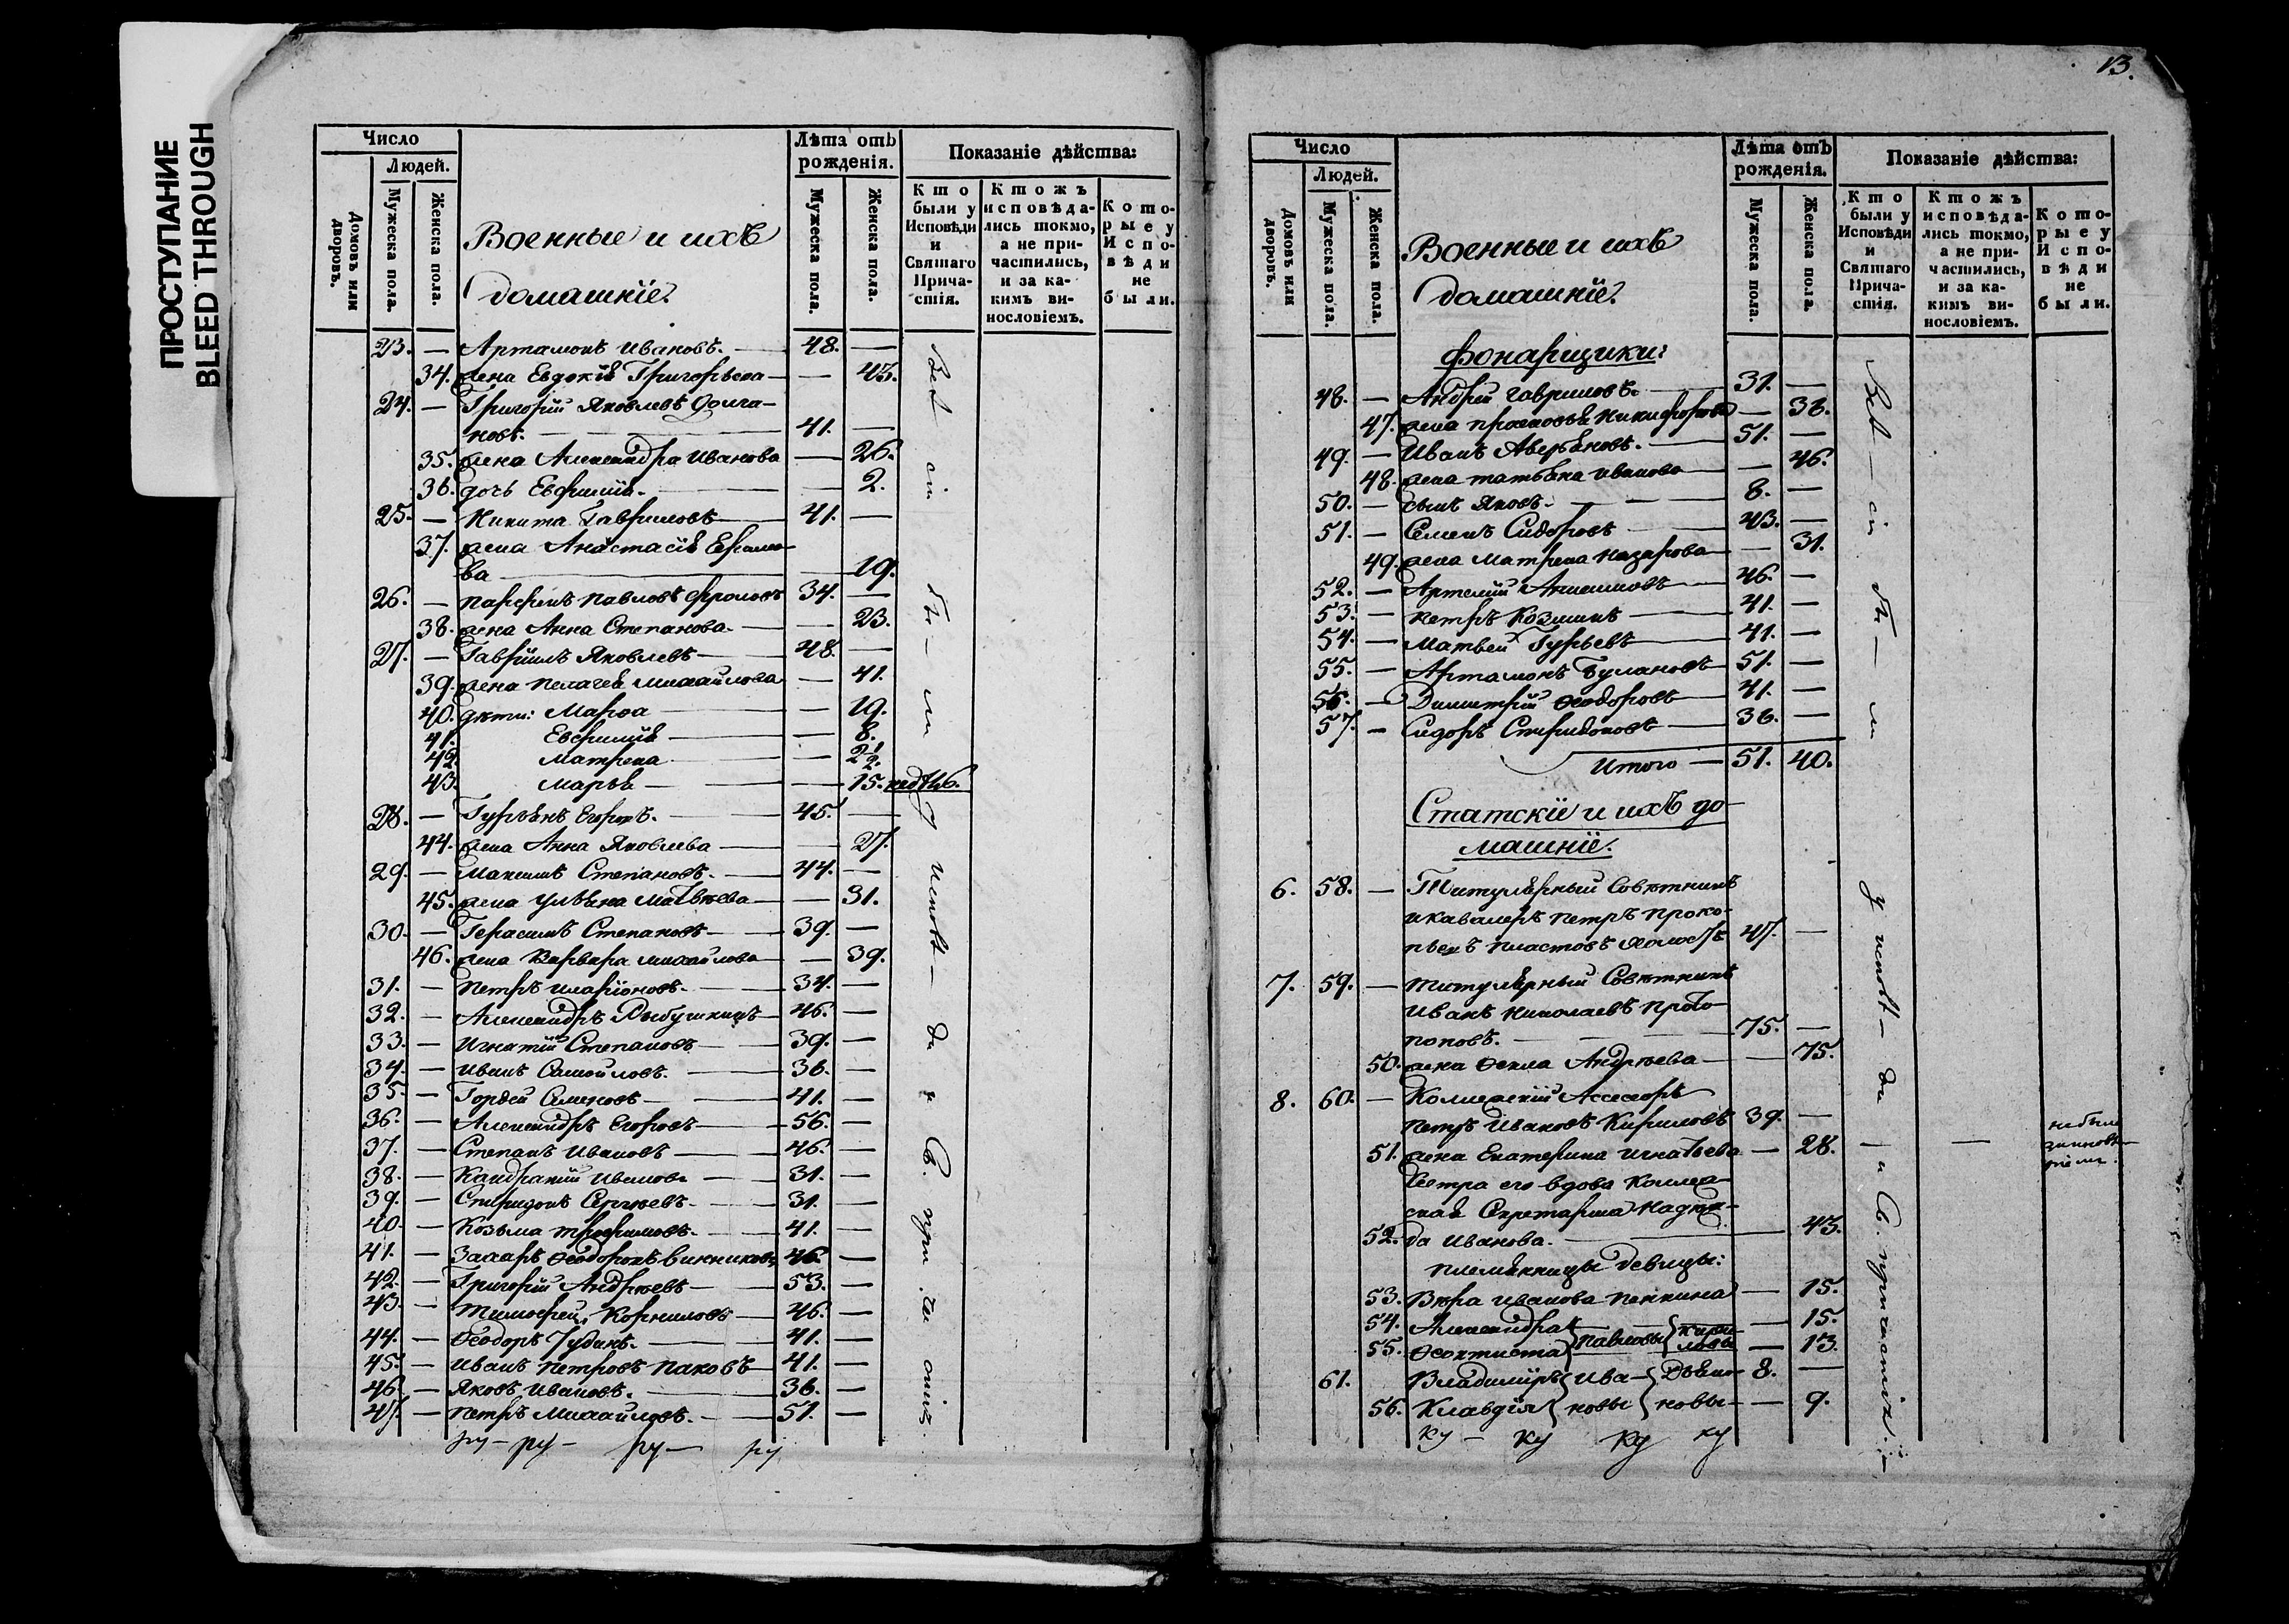 ПРОСТУПАНИЕ
BLEED THROUGH
Число
Людей.
Домовъ или дворовъ.
Мужеска пола.
Женска пола.
Военные и ихъ
домашніе.
Лѣта отъ рожденія.
Мужеска пола.
Женска пола.
Показаніе дѣйства:
Кто были у Исповѣди и Святаго Причастія.
Ктожъ исповѣдались токмо, а не причастились, и за какимъ винословіемъ.
Которые у Исповѣди не были.
23. — Артамонъ Ивановъ. — 48. —
34. жена Евдокія Григорьева — — 43.
24. — Григорій Яковлевъ Долга-
новъ. — 41. —
35. жена Александра Иванова — 26.
36. дочь Евфимія. — — 2.
25. — Никита Гавриловъ — 41. —
37. жена Анастасія
ва — 19.
26. — Парфенъ Павловъ Фроловъ 34. —
38. жена Анна Степанова — — 23.
27. — Гавріилъ Яковлевъ — 48. —
39. жена Пелагея Михайлова — 41.
40. дѣти: Марѳа — — 19.
41. Евфимія — — 8.
42. Матрена — 2 1/2.
43. Марья — — 15. нед
28. — Гурьянъ Егоровъ. — 45. —
44. жена Анна Яковлева — — 27.
29. — Максимъ Степановъ. — 44. —
45. жена Ульяна Матвѣева — — 31.
30. — Герасимъ Степановъ — 39. —
46. жена Варвара Михайлова — 39.
31. — Петръ Иларіоновъ. — 34. —
32. — Александръ Рыбушкинъ — 46. —
33. — Игнатій Степановъ — 39. —
34. — Иванъ Самойловъ. — 36. —
35. — Гордей Семеновъ — 41. —
36. — Александръ Егоровъ — 56. —
37. — Степанъ Ивановъ — 46. —
38. — Кандратій Ивановъ — 31. —
39. — Спиридонъ Сергѣевъ — 31. —
40. — Козьма Трофимовъ. — 41. —
41. — Захаръ Ѳеодоровъ Винниковъ 46. —
42. — Григорій Андрѣевъ — 53. —
43. — Тимофей Корниловъ — 46. —
44. — Ѳеодоръ Гудинъ. — 41. —
45. — Иванъ Петровъ Паковъ — 41. —
46. — Яковъ Ивановъ. — 36. —
47. — Петръ Михайловъ. — 51. —
Всѣ сіи бы — ли у исповѣ — ди и Св. при ча стія.
ру — ру — ру — ру
13.
Число
Людей.
Домовъ или дворовъ.
Мужеска пола.
Женска пола.
Военные и ихъ
домашніе.
Лѣта отъ рожденія.
Мужеска пола.
Женска пола.
Показаніе дѣйства:
Кто были у Исповѣди и Святаго Причастія.
Ктожъ исповѣдались токмо, а не причастились, и за какимъ винословіемъ.
Которые у Исповѣди не были.
Фонарщики:
48. — Андрей Гавриловъ. — 31. —
47. жена Прасковья Никифорова — 36.
49. — Иванъ Аверьяновъ. — 51. —
48. жена Татьяна Иванова — — 46.
50. — сынъ Яковъ. — — 8. —
51. — Семенъ Сидоровъ — 43. —
49. жена Матрена Назарова — — 31.
52. — Артемій Анисимовъ — 46. —
53. — Петръ Козминъ — 41. —
54. — Матвей Гурьевъ — 41. —
55. — Артамонъ Булановъ — 51. —
56. — Димитрій Ѳеодоровъ — 41. —
57. — Сидоръ Спиридоновъ — 36. —
Итого — 51. 40.
Статскіе и ихъ до-
машніе.
6. 58. — Титулярный Совѣтникъ
и кавалеръ Петръ Проко-
пьевъ Пластовъ холостъ 47. —
7. 59. — Титулярный Совѣтникъ
Иванъ Николаевъ Прото-
поповъ. — 75. —
50. жена Ѳекла Андрѣева — — 75.
8. 60. — Коллежскій Ассесоръ
Петръ Ивановъ Кириловъ 39. —
51. жена Екатерина Игнатьева — 28. —
не были
Сестра его вдова Коллеж-
ская Секретарша Надеж-
52. да Иванова. — 43.
племянницы девицы:
53. Вѣра Иванова Пенкина — 15.
54. Александра — 15.
55. Ѳеоктиста } Павловы { Кири-ловы — 13.
61. Владимиръ } Ива- { 8. —
56. Клавдія } новы { новы — — 9.
Всѣ — сіи бы — ли у исповѣ — ди и Св. причастія.
ку — ку ку ку